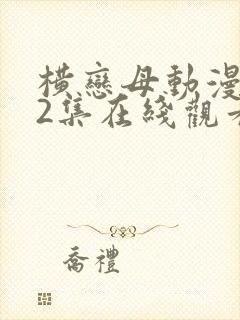 横戀母動漫
2集在綫觀
喬禮